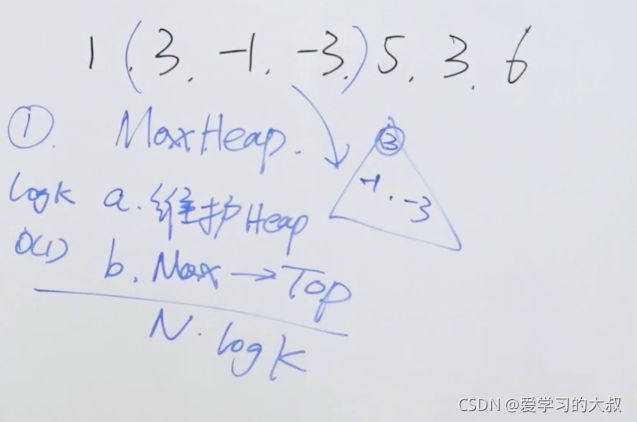 1 (3, -1, -3,) 5, 3, 6
① MaxHeap.
3
-1, -3
logK a. 维护Heap
O(1) b. Max → Top
N·logK
CSDN @爱学习的大叔